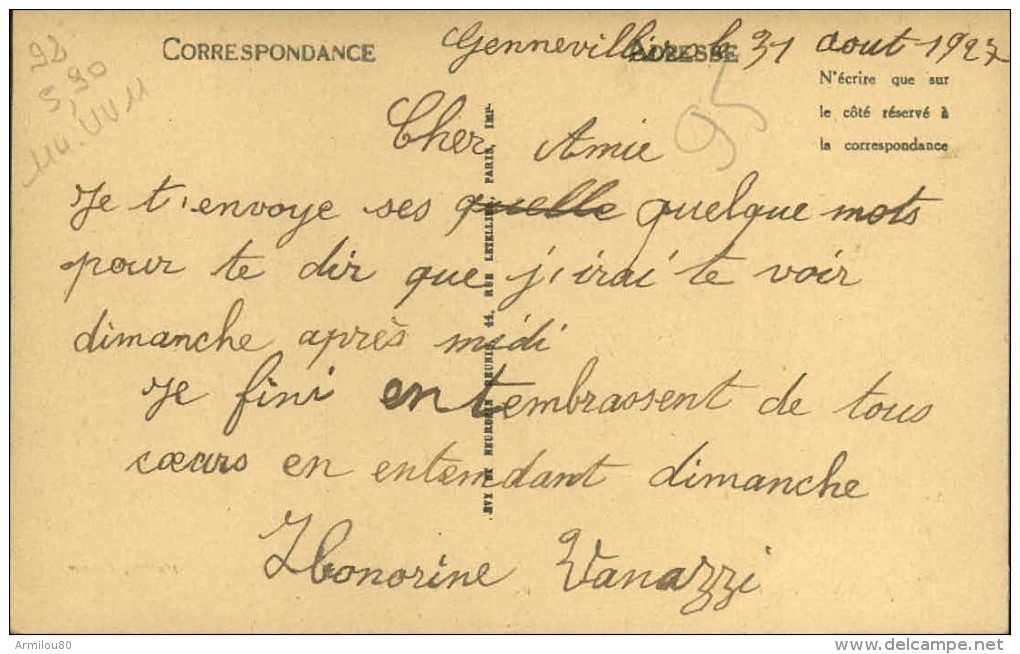 CORRESPONDANCE
ADRESSE
Gennevilliers le 31 aout 1927
N'écrire que sur
le côté réservé à
la correspondance
92
5,90
95
Cher Amie
Je t'envoye ses quelle quelque mots
pour te dir que j'irai te voir
dimanche après midi
Je fini en t'embrassent de tous
cœurs en entendant dimanche
Honorine Vanazzi
RUE LETELLIER, PARIS, IMP.
Armilou80
www.delcampe.net